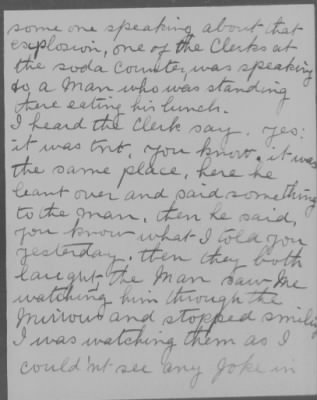 some one speaking about that
explosion, one of the Clerks at
the soda Counter, was speaking
to a Man who was standing
there eating his lunch.
I heard the Clerk say, yes;
it was tnt, you know, it was
the same place, here he
leant over and said something
to the Man, then he said,
you know what I told you
yesterday, then they both
laught, the Man saw Me
watching him through the
Mirrow and stopped smiling
I was watching them as I
could'nt see any Joke in